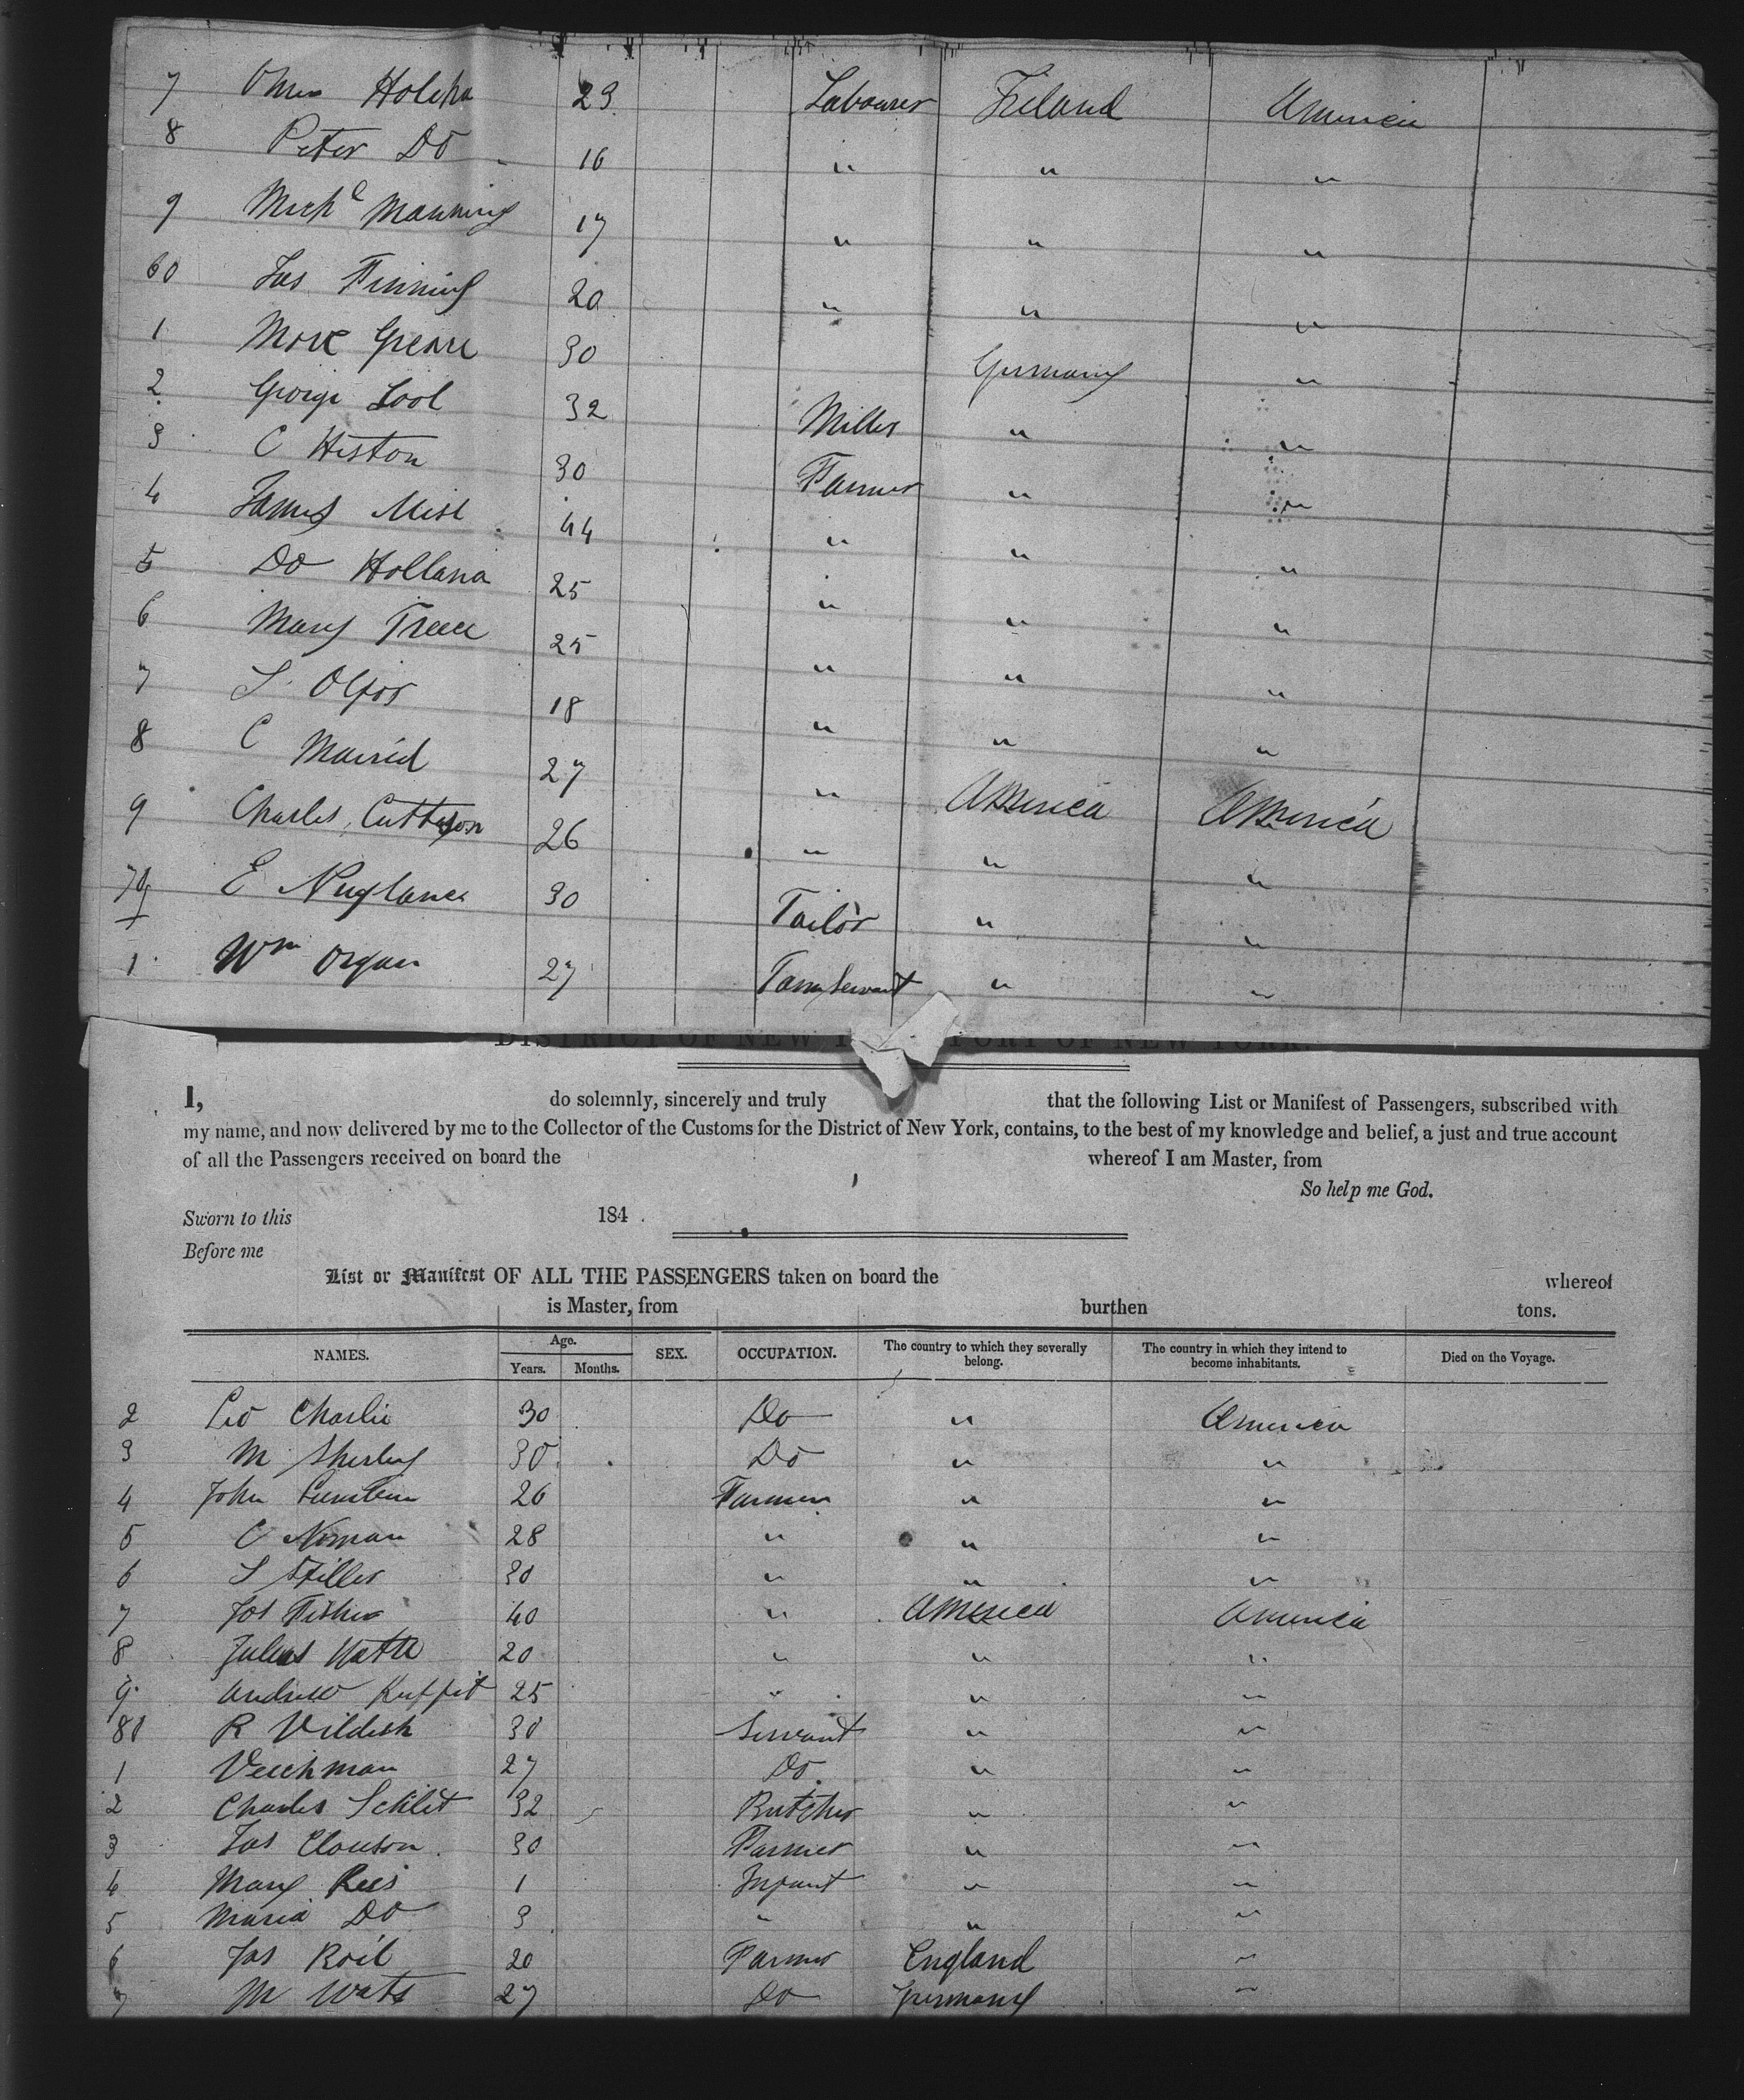 7 Holcha 23 Labourer Ireland America
8 Peter Do 16 " " "
9 Michl Manning 17 " " "
60 Jas Finning 20 " " "
1 30 Germany "
2 George 32 Miller " "
3 C Histon 30 Farmer " "
4 James 44 " " "
5 Do Holland 25 " " "
6 Mary 25 " " "
7 18 " " "
8 C 27 " " "
9 Charles 26 " America America
" "
70 E 30 Tailor " "
1 Wm Organ 27 Farm Servant " "
DISTRICT OF NEW PORT OF NEW YORK.
I, do solemnly, sincerely and truly that the following List or Manifest of Passengers, subscribed with
my name, and now delivered by me to the Collector of the Customs for the District of New York, contains, to the best of my knowledge and belief, a just and true account
of all the Passengers received on board the whereof I am Master, from
So help me God.
Sworn to this 184 .
Before me
List or Manifest OF ALL THE PASSENGERS taken on board the whereof
is Master, from burthen tons.
NAMES. Age. Years. Months. SEX. OCCUPATION. The country to which they severally belong. The country in which they intend to become inhabitants. Died on the Voyage.
2 Leo Charlie 30 Do " America
3 M Sherley 30 Do " "
4 John 26 Farmer " "
5 C Noman 28 " " "
6 S Stiller 30 " " "
7 Jos Fisher 40 " America America
8 Julius 20 " " "
9 Andrew 25 " " "
80 R Vildish 30 Servant " "
1 Veichman 27 Do " "
2 Charles Schlit 32 Butcher " "
3 Jas Clouson 30 Farmer " "
4 Mary Rees 1 Infant " "
5 Maria Do 3 " " "
6 Jas Roil 20 Farmer England "
7 M Wats 27 Do Germany "